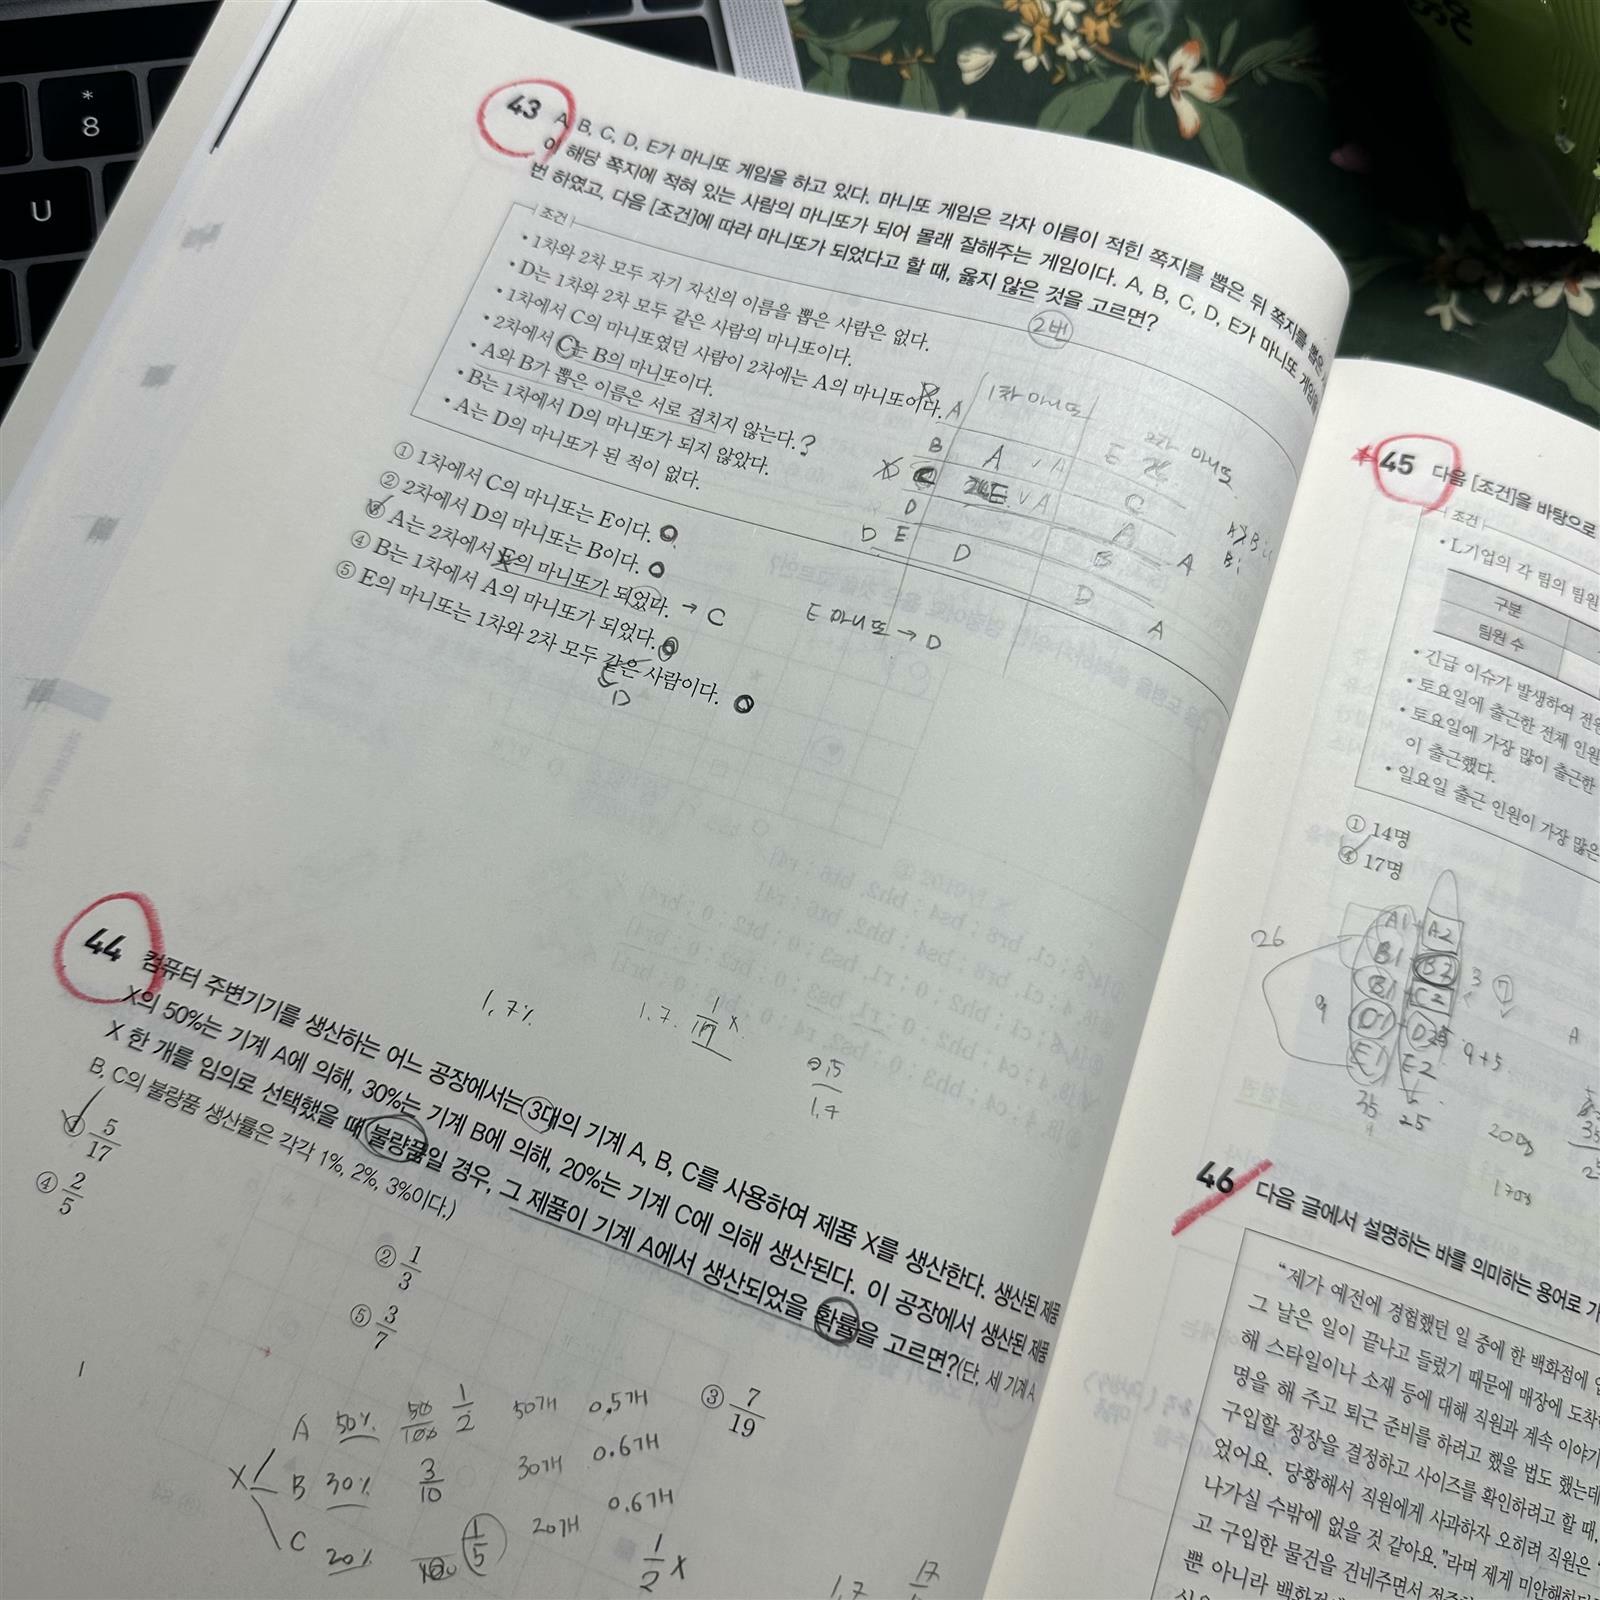 *
8
U
43 A, B, C, D, E가 마니또 게임을 하고 있다. 마니또 게임은 각자 이름이 적힌 쪽지를 뽑은 뒤 쪽지를 뽑은
이 해당 쪽지에 적혀 있는 사람의 마니또가 되어 몰래 잘해주는 게임이다. A, B, C, D, E가 마니또 게임을
번 하였고, 다음 [조건]에 따라 마니또가 되었다고 할 때, 옳지 않은 것을 고르면?
2번
조건
• 1차와 2차 모두 자기 자신의 이름을 뽑은 사람은 없다.
• D는 1차와 2차 모두 같은 사람의 마니또이다.
• 1차에서 C의 마니또였던 사람이 2차에는 A의 마니또이다.
• 2차에서 C는 B의 마니또이다.
• A와 B가 뽑은 이름은 서로 겹치지 않는다. ?
• B는 1차에서 D의 마니또가 되지 않았다.
• A는 D의 마니또가 된 적이 없다.
① 1차에서 C의 마니또는 E이다.
② 2차에서 D의 마니또는 B이다.
③ A는 2차에서 E의 마니또가 되었다. → C
④ B는 1차에서 A의 마니또가 되었다.
⑤ E의 마니또는 1차와 2차 모두 같은 사람이다.
D
1차 마니또
2차 마니또
A
B A ∨ A E
C E ∨ A C
D A
D E D B A
D
A
E 마니또 → D
44 컴퓨터 주변기기를 생산하는 어느 공장에서는 3대의 기계 A, B, C를 사용하여 제품 X를 생산한다. 생산된 제품
X의 50%는 기계 A에 의해, 30%는 기계 B에 의해, 20%는 기계 C에 의해 생산된다. 이 공장에서 생산된 제품
X 한 개를 임의로 선택했을 때 불량품일 경우, 그 제품이 기계 A에서 생산되었을 확률을 고르면?(단, 세 기계 A,
B, C의 불량품 생산률은 각각 1%, 2%, 3%이다.)
1.7%
0.5
1.7
① 5/17
② 1/3
③ 7/19
④ 2/5
⑤ 3/7
A 50% 50/100 1/2 50개 0.5개
X B 30% 3/10 30개 0.6개
C 20% 1/5 20개 0.6개
1/2 X
1.7
17
45 다음 [조건]을 바탕으로
조건
• L기업의 각 팀의 팀원
구분
팀원 수
• 긴급 이슈가 발생하여 전원
• 토요일에 출근한 전체 인원
• 토요일에 가장 많이 출근한
이 출근했다.
• 일요일 출근 인원이 가장 많은
① 14명
④ 17명
26
A1 A2
B1 B2 3 7
C2
9 D1 9+5
E1 E2
35 25
46 다음 글에서 설명하는 바를 의미하는 용어로 가
“제가 예전에 경험했던 일 중에 한 백화점에
그 날은 일이 끝나고 들렀기 때문에 매장에 도착
해 스타일이나 소재 등에 대해 직원과 계속 이야기
명을 해 주고 퇴근 준비를 하려고 했을 법도 했는데
구입할 정장을 결정하고 사이즈를 확인하려고 할 때,
었어요. 당황해서 직원에게 사과하자 오히려 직원은
나가실 수밖에 없을 것 같아요.”라며 제게 미안해
고 구입한 물건을 건네주면서
뿐 아니라 백화점